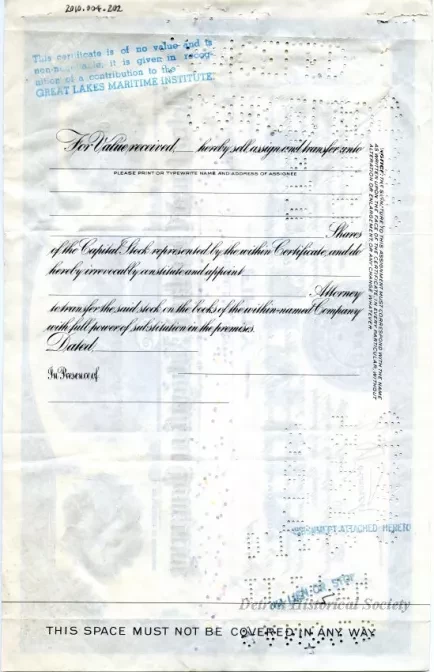 2010.004.202
This certificate is of no value and is
non-negotiable, it is given in recog-
nition of a contribution to the
GREAT LAKES MARITIME INSTITUTE
For Value received, hereby sell, assign and transfer unto
PLEASE PRINT OR TYPEWRITE NAME AND ADDRESS OF ASSIGNEE
Shares
of the Capital Stock represented by the within Certificate, and do
hereby irrevocably constitute and appoint
Attorney
to transfer the said stock on the books of the within-named Company
with full power of substitution in the premises.
Dated,
In Presence of
NOTICE: THE SIGNATURE TO THIS ASSIGNMENT MUST CORRESPOND WITH THE NAME
AS WRITTEN UPON THE FACE OF THE CERTIFICATE, IN EVERY PARTICULAR, WITHOUT
ALTERATION OR ENLARGEMENT, OR ANY CHANGE WHATEVER.
ATTACHED HERETO
Detroit Historical Society
THIS SPACE MUST NOT BE COVERED IN ANY WAY